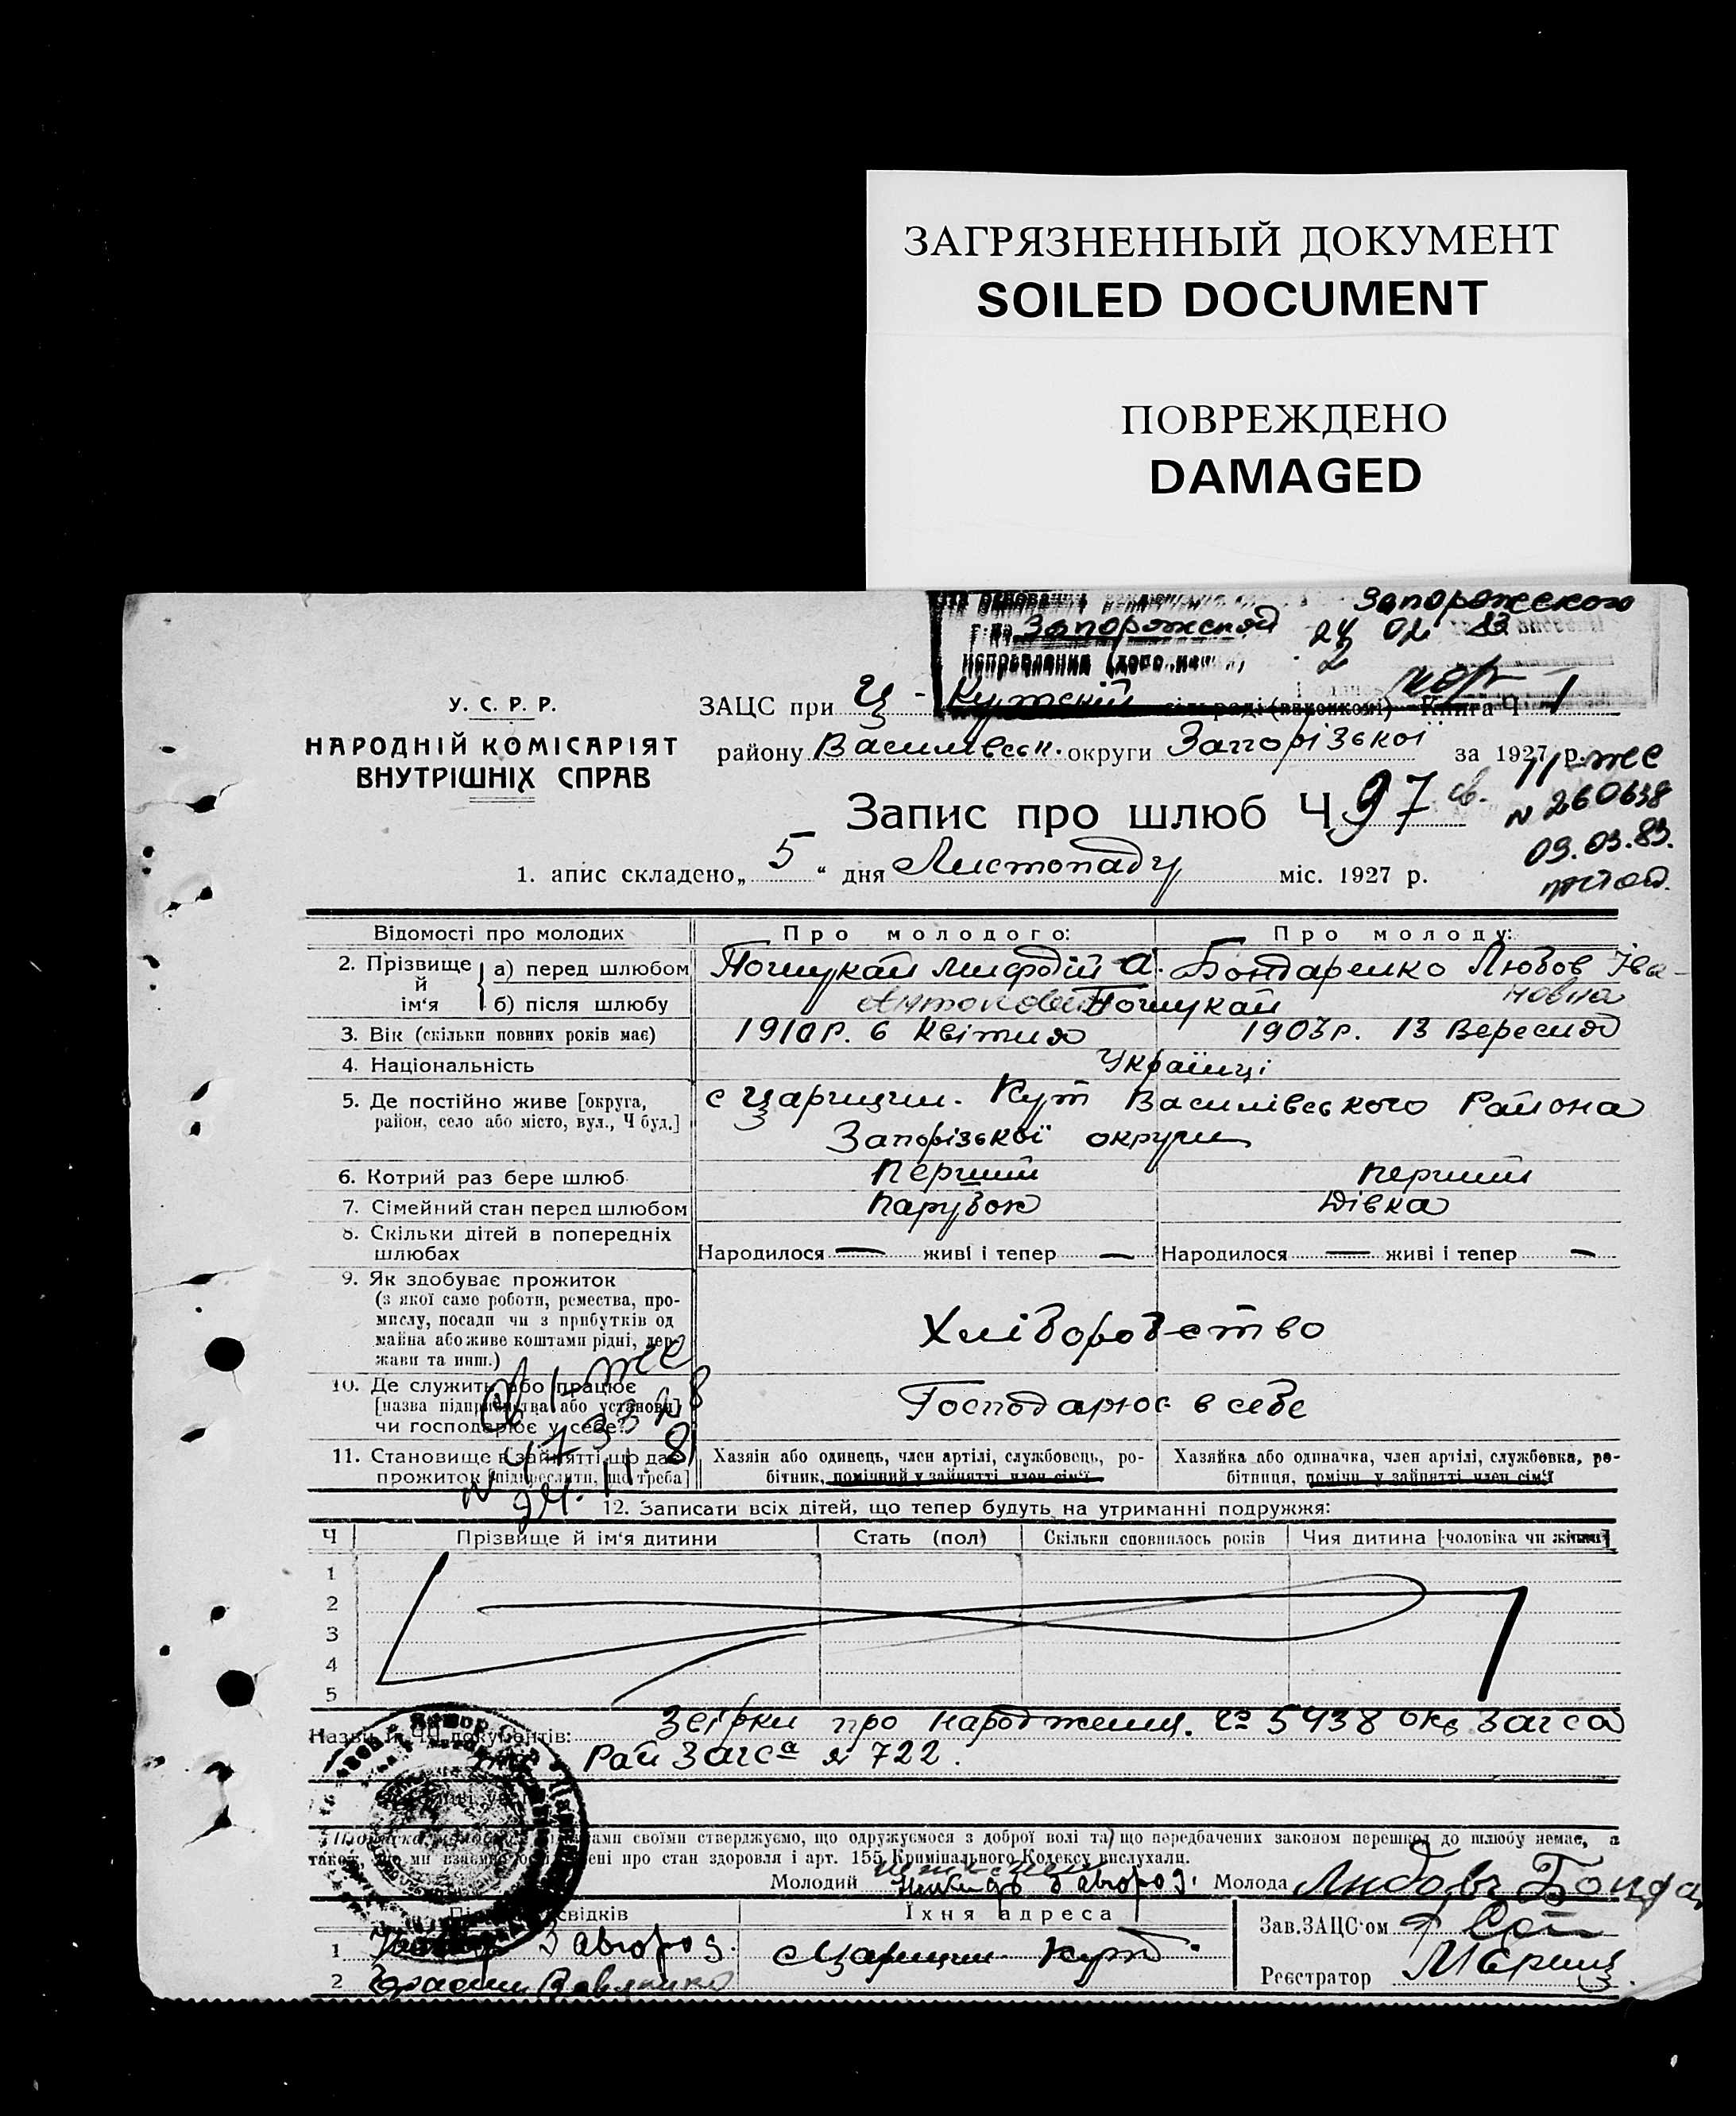 ЗАГРЯЗНЕННЫЙ ДОКУМЕНТ
SOILED DOCUMENT
ПОВРЕЖДЕНО
DAMAGED
Запорожского
Запорожской 24 02 83
исправлении
У. С. Р. Р.
НАРОДНІЙ КОМІСАРІЯТ
ВНУТРІШНІХ СПРАВ
ЗАЦС при Ц-Кутській сільраді (виконкомі) Книга Ч 1
району Василівськ. округи Запорізької за 1927 р.
Запис про шлюб Ч 97
11-же
N 260638
09.03.83.
1. апис складено „5“ дня Листопаду міс. 1927 р.
Відомості про молодих
Про молодого:
Про молоду:
2. Прізвище й ім‘я
а) перед шлюбом
Пошукай Мифодій А.
Бондаренко Любов Іва-
новна
б) після шлюбу
Антонович Пошукай
3. Вік (скільки повних років має)
1910р. 6 Квітня
1903р. 13 Вересня
4. Національність
Українці
5. Де постійно живе [округа,
район, село або місто, вул., Ч буд.]
с Царицин. Кут Василівського Района
Запорізької округи
6. Котрий раз бере шлюб
Перший
перший
7. Сімейний стан перед шлюбом
Парубок
Дівка
8. Скільки дітей в попередніх
шлюбах
Народилося — живі і тепер —
Народилося — живі і тепер —
9. Як здобуває прожиток
(з якої саме роботи, ремества, про-
мислу, посади чи з прибутків од
майна або живе коштами рідні, дер-
жави та инш.)
Хліборобство
10. Де служить або працює
[назва підприємства або установи]
чи господарює у себе?
Господарює в себе
11. Становище в зайнятті що дає
прожиток [підкреслити, що треба]
Хазяїн або одинець, член артілі, службовець, ро-
бітник, помічний у зайнятті член сім‘ї
Хазяйка або одиначка, член артілі, службовка, ро-
бітниця, помічн. у зайнятті член сім‘ї
12. Записати всіх дітей, що тепер будуть на утриманні подружжя:
Ч
Прізвище й ім‘я дитини
Стать (пол)
Скільки сповнилось років
Чия дитина [чоловіка чи жінки]
1
2
3
4
5
Назви й ЧЧ документів: Звірки про народження. Ч 5938 Окр Загса
Рай Загса № 722.
ами своїми стверджуємо, що одружуємося з доброї волі та що передбачених законом перешкод до шлюбу немає, а
також, що ми взаємно освідомлені про стан здоровля і арт. 155 Кримінального Кодексу вислухали.
Молодий
Молода Любовъ Бонда
свідків
Їхня адреса
1
2
с Царицин Кут
Зав. ЗАЦС‘ом
Реєстратор